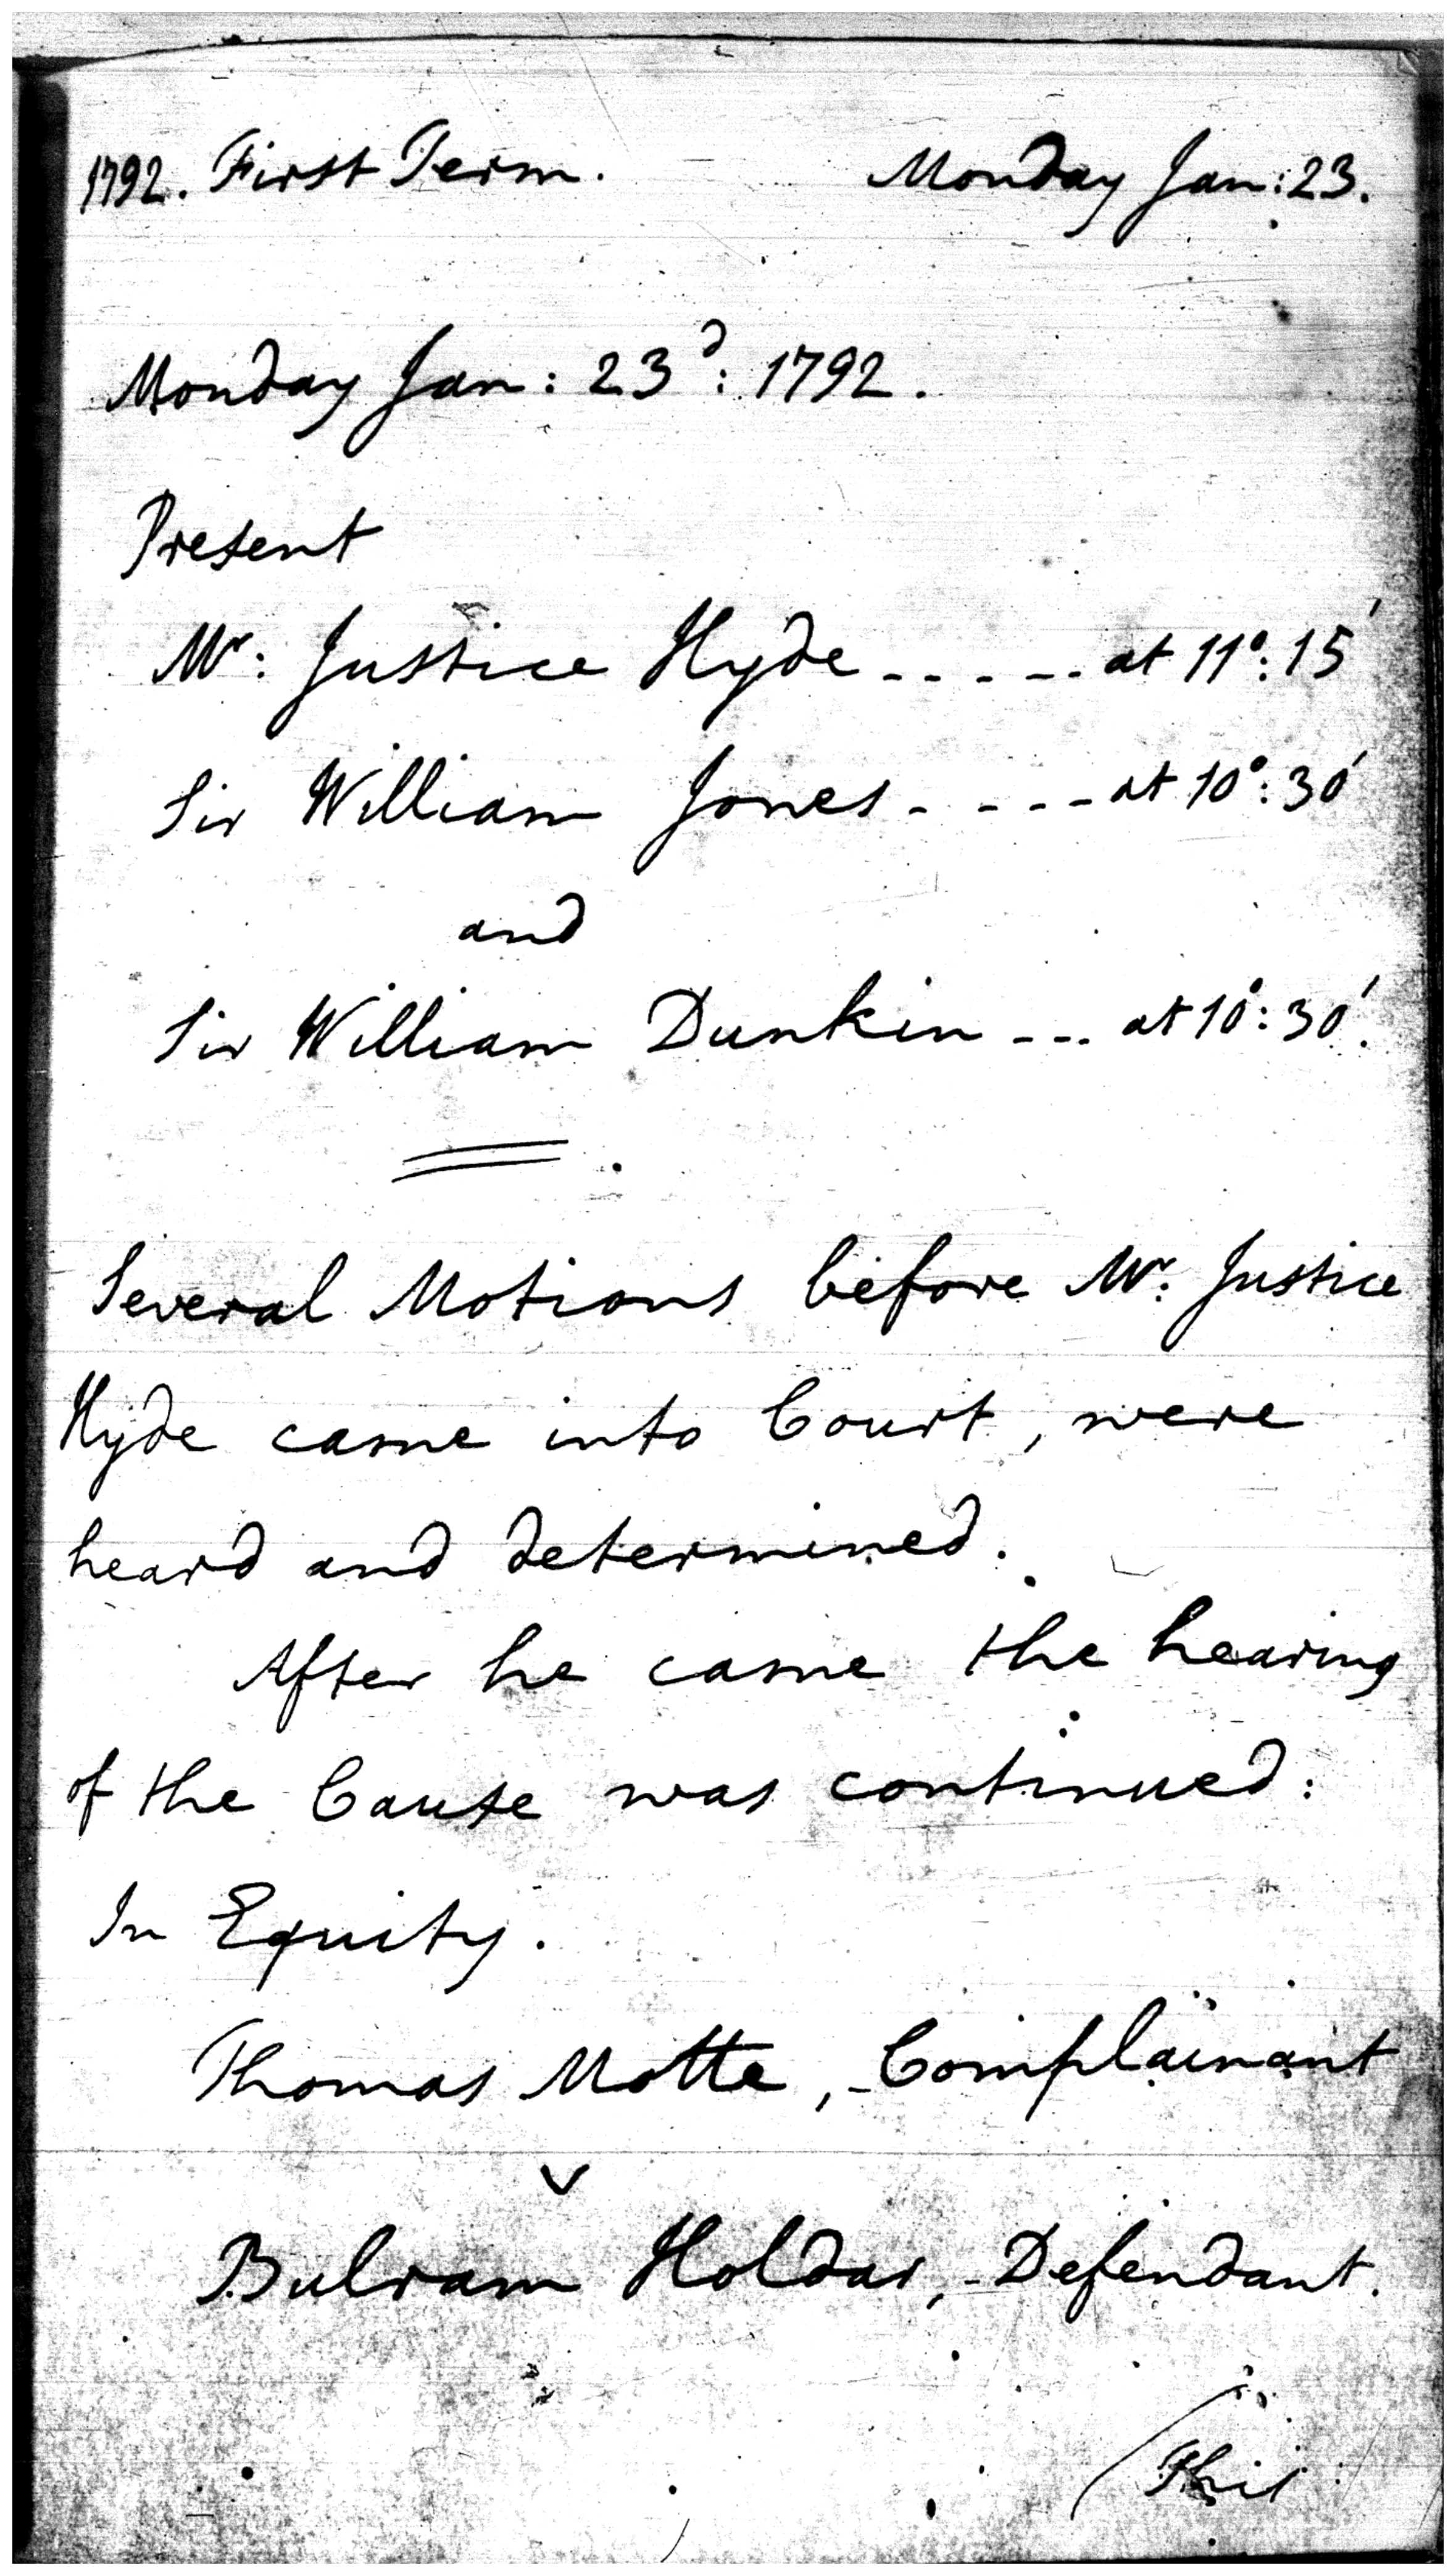 1792. First Term. Monday Jan: 23.
Monday Jan: 23d: 1792.
Present
Mr: Justice Hyde - - - - - at 11°: 15'
Sir William Jones - - - - at 10°: 30'
and
Sir William Dunkin - - - at 10°: 30'.
Several Motions before Mr: Justice
Hyde came into Court, were
heard and determined.
After he came the hearing
of the Cause was continued:
In Equity.
Thomas Motte, - Complainant
v
Bulram Holdar, - Defendant.
This